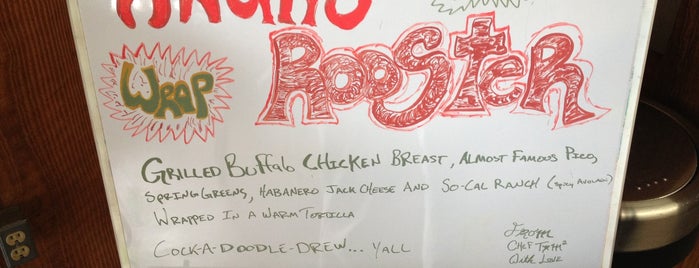 ROOSTER
WRAP
GRILLED BUFFALO CHICKEN BREAST, ALMOST FAMOUS PICO,
SPRING GREENS, HABANERO JACK CHEESE AND SO-CAL RANCH (SPICY AVOCADO)
WRAPPED IN A WARM TORTILLA
COCK-A-DOODLE-DREW... YALL
FROM
CHEF
WITH LOVE